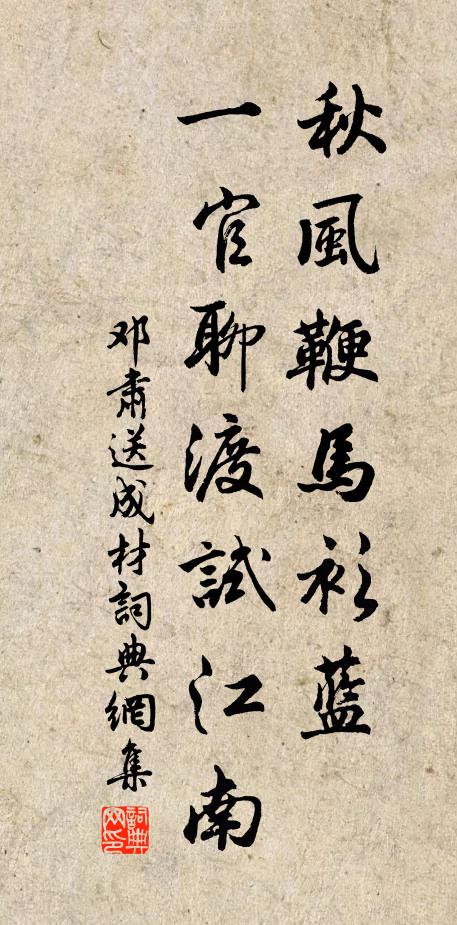 秋風鞭馬衫藍
一官聊渡試江南
邓肅送成材詞典網集
詞典网印